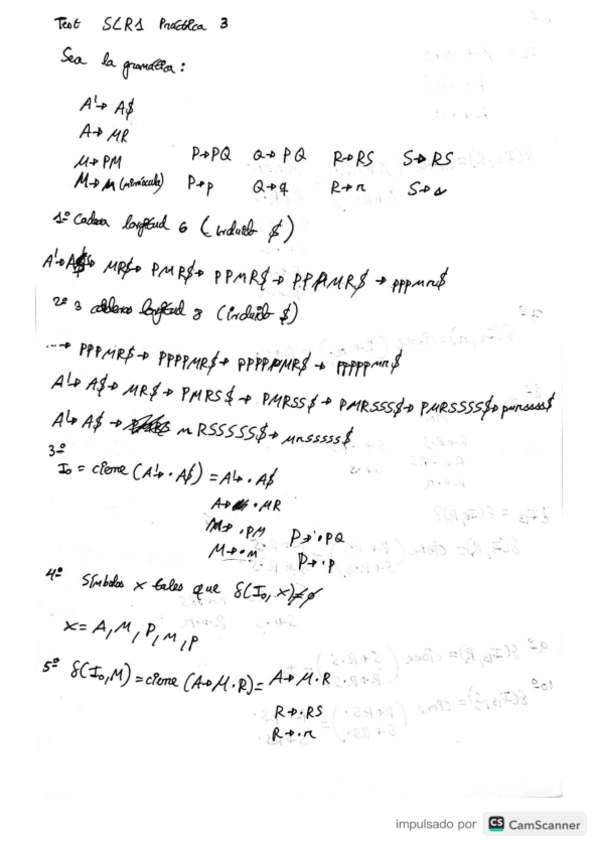 Test SLR1 Práctica 3
Sea la gramática:
A'→ A$
A→ MR
M→PM P→PQ Q→ PQ R→RS S→ RS
M→ m (minúscula) P→p Q→q R→ r S→ s
1º Cadena longitud 6 (incluido $)
A'→A$→ MR$→ PMR$→ PPMR$→ PPPMR$ → pppmr$
2º 3 cadenas longitud 8 (incluido $)
...→ PPPMR$→ PPPPMR$→ PPPPPMR$→ pppppmr$
A'→ A$→ MR$→ PMRS$→ PMRSS$→ PMRSSS$→ PMRSSSS$→ pmrssss$
A'→ A$ → MRSSSSS$→ mrsssss$
3º
I₀ = cierre (A'→ · A$) = A'→ · A$
A→ · MR
M→ ·PM P→ ·PQ
M→ ·m P→ ·p
4º Símbolos x tales que δ(I₀, x)≠∅
x= A, M, P, m, p
5º δ(I₀,M) = cierre (A→ M·R) = A→ M·R
R→·RS
R→·r
impulsado por CS CamScanner